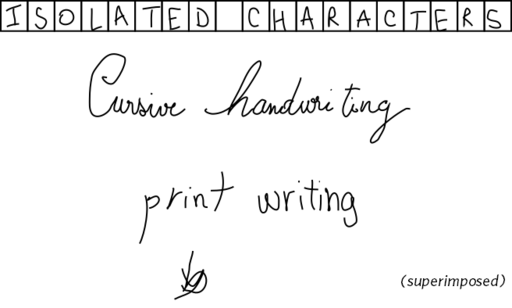 ISOLATED CHARACTERS
Cursive handwriting
print writing
(superimposed)